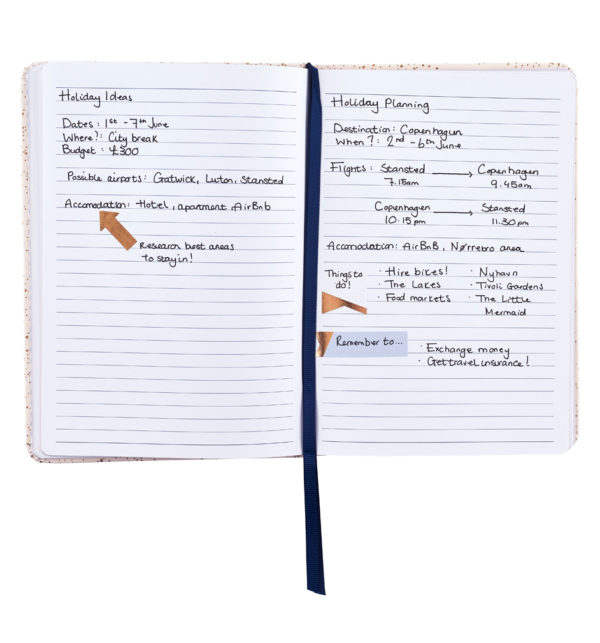 Holiday Ideas
Dates: 1st - 7th June
Where?: City break
Budget: £300
Possible airports: Gatwick, Luton, Stansted
Accomodation: Hotel, apartment, AirBnb
Research best areas
to stay in!
Holiday Planning
Destination: Copenhagen
When?: 2nd - 6th June
Flights: Stansted → Copenhagen
7.15am 9.45am
Copenhagen → Stansted
10.15pm 11.30pm
Accomodation: AirBnB, Nørrebro area
Things to
do!
· Hire bikes!
· The Lakes
· Food markets
· Nyhavn
· Tivoli Gardens
· The Little
Mermaid
Remember to...
· Exchange money
· Get travel insurance!